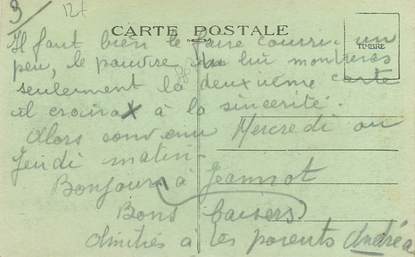 3
12f
CARTE POSTALE
TIMBRE
Il faut bien le faire courrir un
peu, le pauvre tu lui montreras
seulement la deuxième carte
il croira à la sincérité.
Alors convenu Mercredi ou
Jeudi matin.
Bonjour à Jeannot
Bons baisers
Amitiés à tes parents Andréa